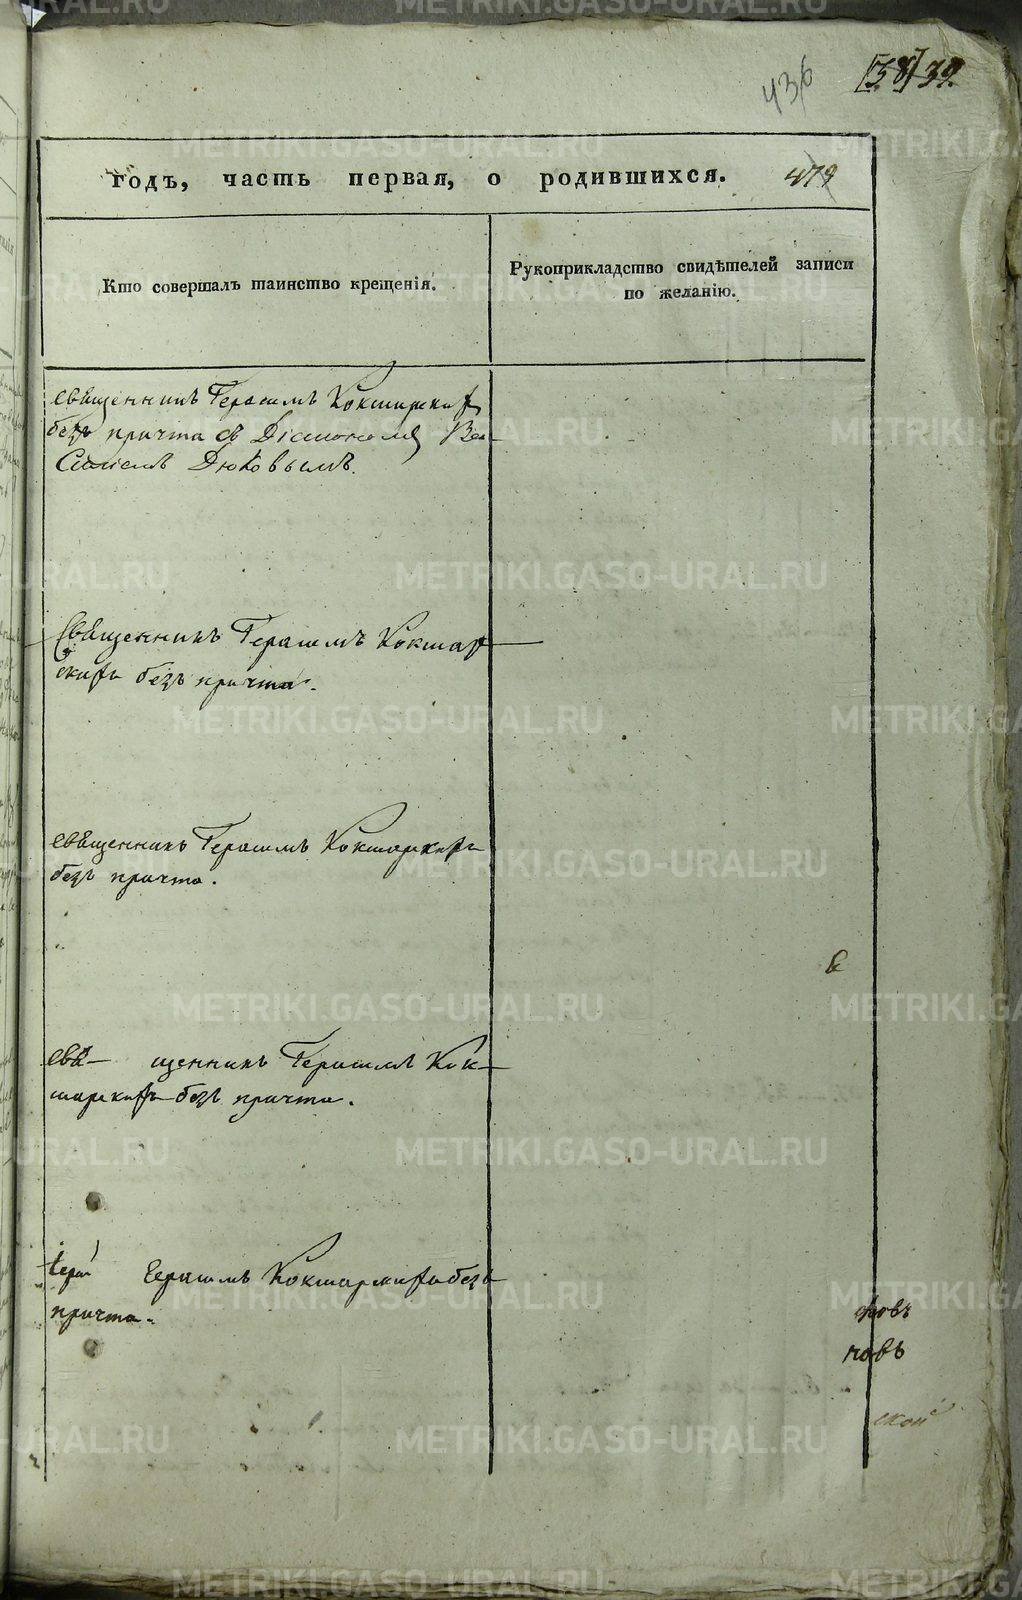 436 [38] 39.
годъ, часть первая, о родившихся. 479
Кто совершалъ таинство крещенія.
Рукоприкладство свидѣтелей записи
по желанію.
священникъ Герасимъ Кокшарскій
безъ причта съ Діакономъ Ва-
силіемъ Дюковымъ.
Священникъ Герасимъ Кокшар-
скій безъ причта.
священникъ Герасимъ Кокшарскій
безъ причта.
свя- щенникъ Герасимъ Кок-
шарскій безъ причта.
Герасимъ Кокшарскій безъ
причта.
ковъ
новъ
ской
METRIKI.GASO-URAL.RU